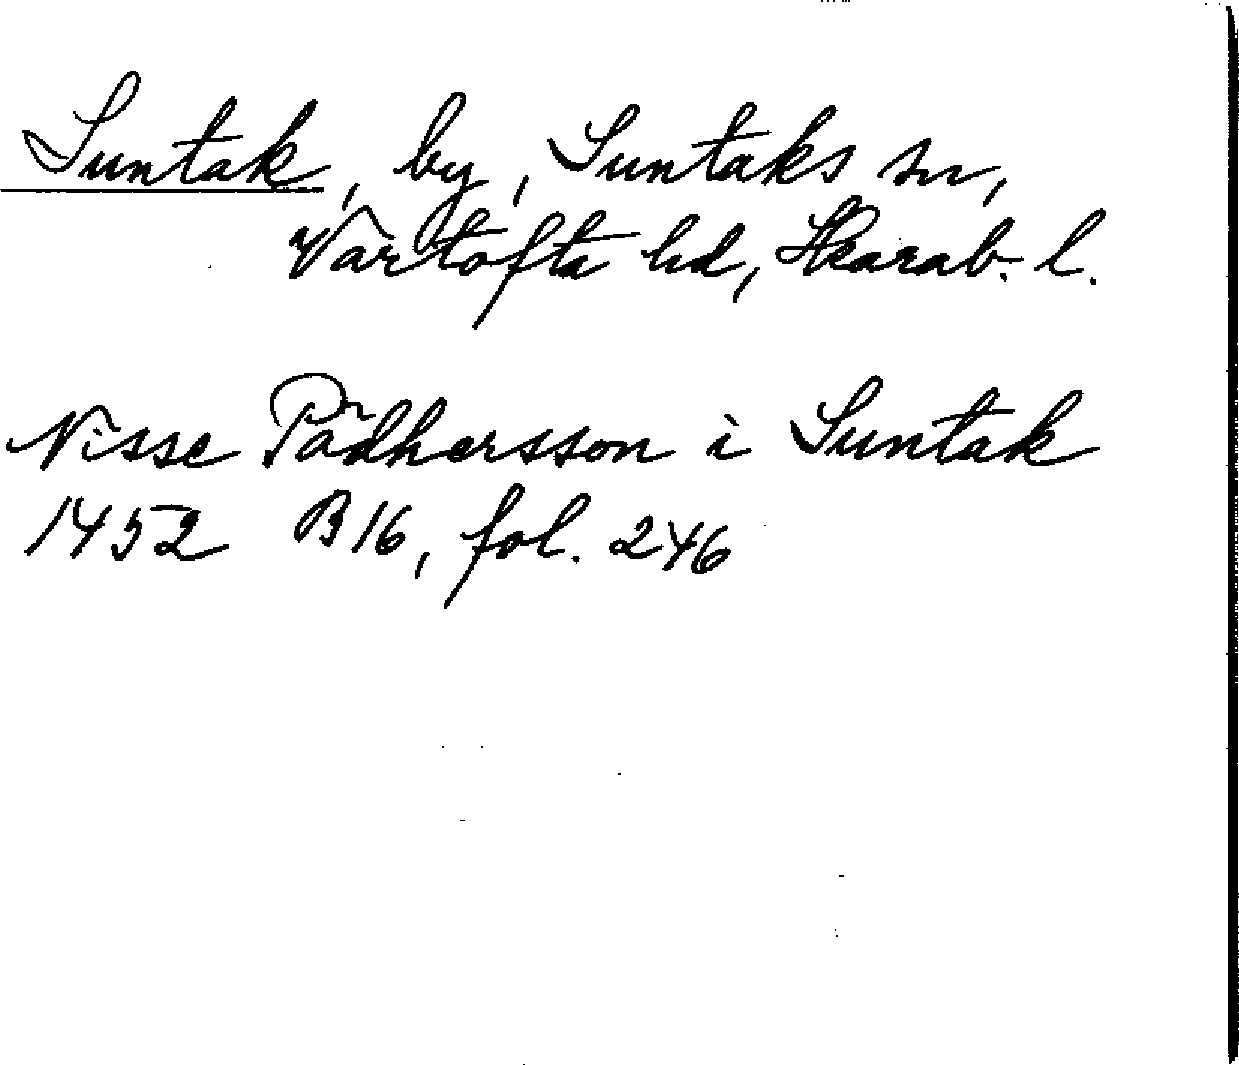 Suntak, by, Suntaks sn,
Vartofta hd, Skarab. l.
Nisse Pädhersson i Suntak
1452 B16, fol. 246